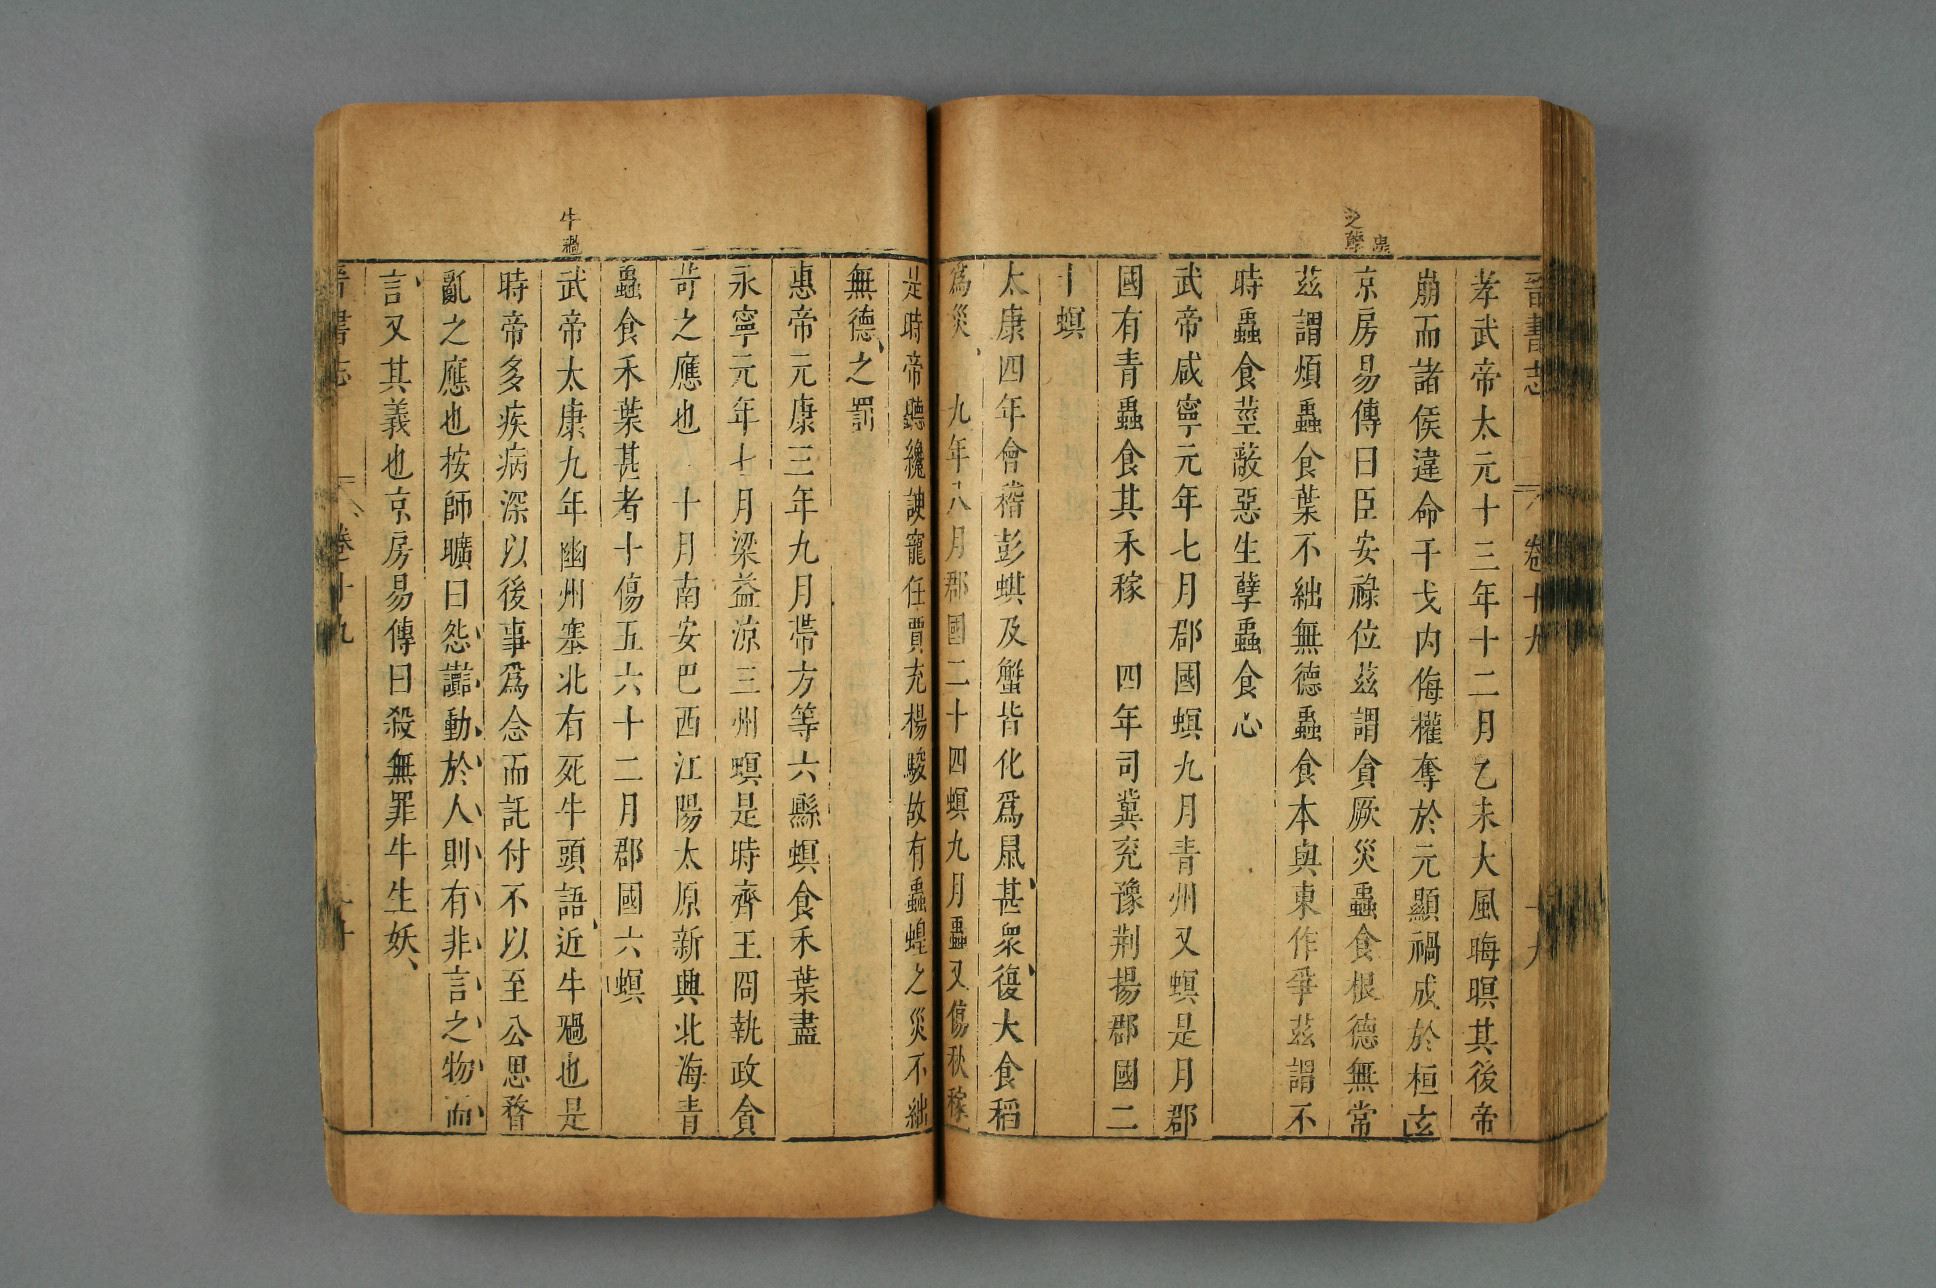 晉書志 卷十九 十九
孝武帝太元十三年十二月乙未大風晦暝其後帝
崩而諸侯違命干戈內侮權奪於元顯禍成於桓玄
之孽
京房易傳曰臣安祿位茲謂貪厥災蟲食根德無常
茲謂煩蟲食葉不絀無德蟲食本與東作爭茲謂不
時蟲食莖蔽惡生孽蟲食心
武帝咸寧元年七月郡國螟九月青州又螟是月郡
國有青蟲食其禾稼 四年司冀兗豫荆揚郡國二
十螟
太康四年會稽彭蜞及蟹皆化爲鼠甚衆復大食稻
爲災 九年八月郡國二十四螟九月蟲又傷秋稼
是時帝聽讒諛寵任賈充楊駿故有蟲蝗之災不絀
無德之罰
惠帝元康三年九月帶方等六縣螟食禾葉盡
永寧元年七月梁益涼三州螟是時齊王冏執政貪
苛之應也 十月南安巴西江陽太原新興北海青
蟲食禾葉甚者十傷五六十二月郡國六螟
牛禍
武帝太康九年幽州塞北有死牛頭語近牛禍也是
時帝多疾病深以後事爲念而託付不以至公思瞀
亂之應也按師曠曰怨讟動於人則有非言之物而
言又其義也京房易傳曰殺無罪牛生妖
晉書志 卷十九